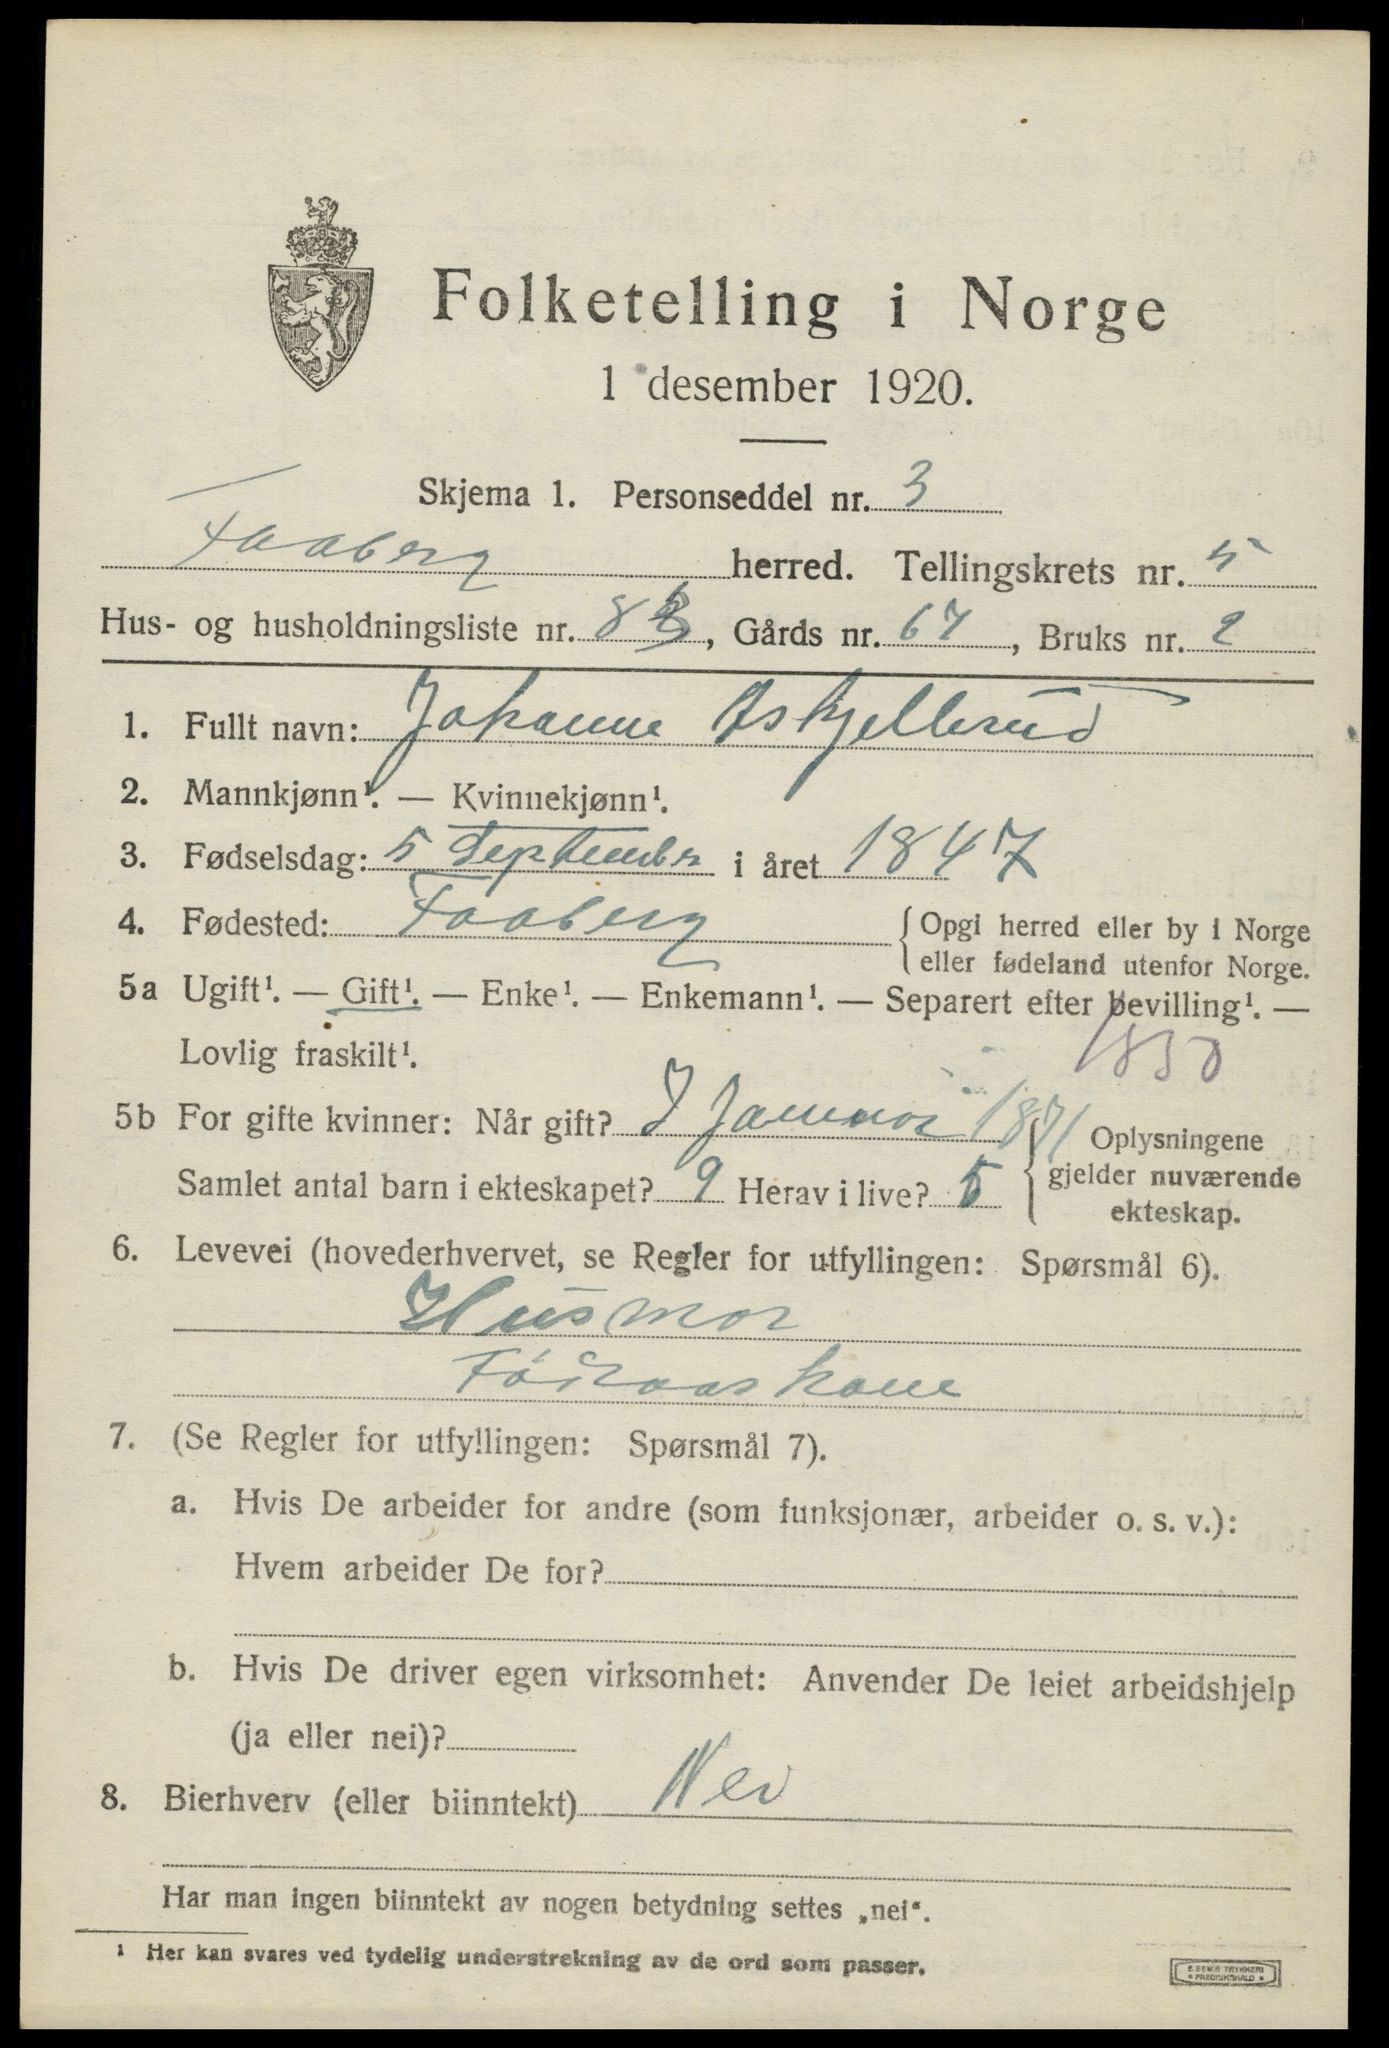 Folketelling i Norge
1 desember 1920.
Skjema 1. Personseddel nr. 3
Faaberg herred. Tellingskrets nr. 5
Hus- og husholdningsliste nr. 8, Gårds nr. 67, Bruks nr. 2
1. Fullt navn: Johanne Askjellerud
2. Mannkjønn¹. — Kvinnekjønn¹.
3. Fødselsdag: 5 September i året 1847
4. Fødested: Faaberg { Opgi herred eller by i Norge
eller fødeland utenfor Norge.
5a Ugift¹. — Gift¹. — Enke¹. — Enkemann¹. — Separert efter bevilling¹. —
Lovlig fraskilt¹.
1830
5b For gifte kvinner: Når gift? I Januar 1871 { Oplysningene
Samlet antal barn i ekteskapet? 9 Herav i live? 5 gjelder nuværende
ekteskap.
6. Levevei (hovederhvervet, se Regler for utfyllingen: Spørsmål 6).
Husmor
Föderaaskone
7. (Se Regler for utfyllingen: Spørsmål 7).
a. Hvis De arbeider for andre (som funksjonær, arbeider o. s. v.):
Hvem arbeider De for?
b. Hvis De driver egen virksomhet: Anvender De leiet arbeidshjelp
(ja eller nei)?
8. Bierhverv (eller biinntekt) Nei
Har man ingen biinntekt av nogen betydning settes „nei“.
¹ Her kan svares ved tydelig understrekning av de ord som passer.
E. SEM'S TRYKKERI
• FREDRIKSHALD •